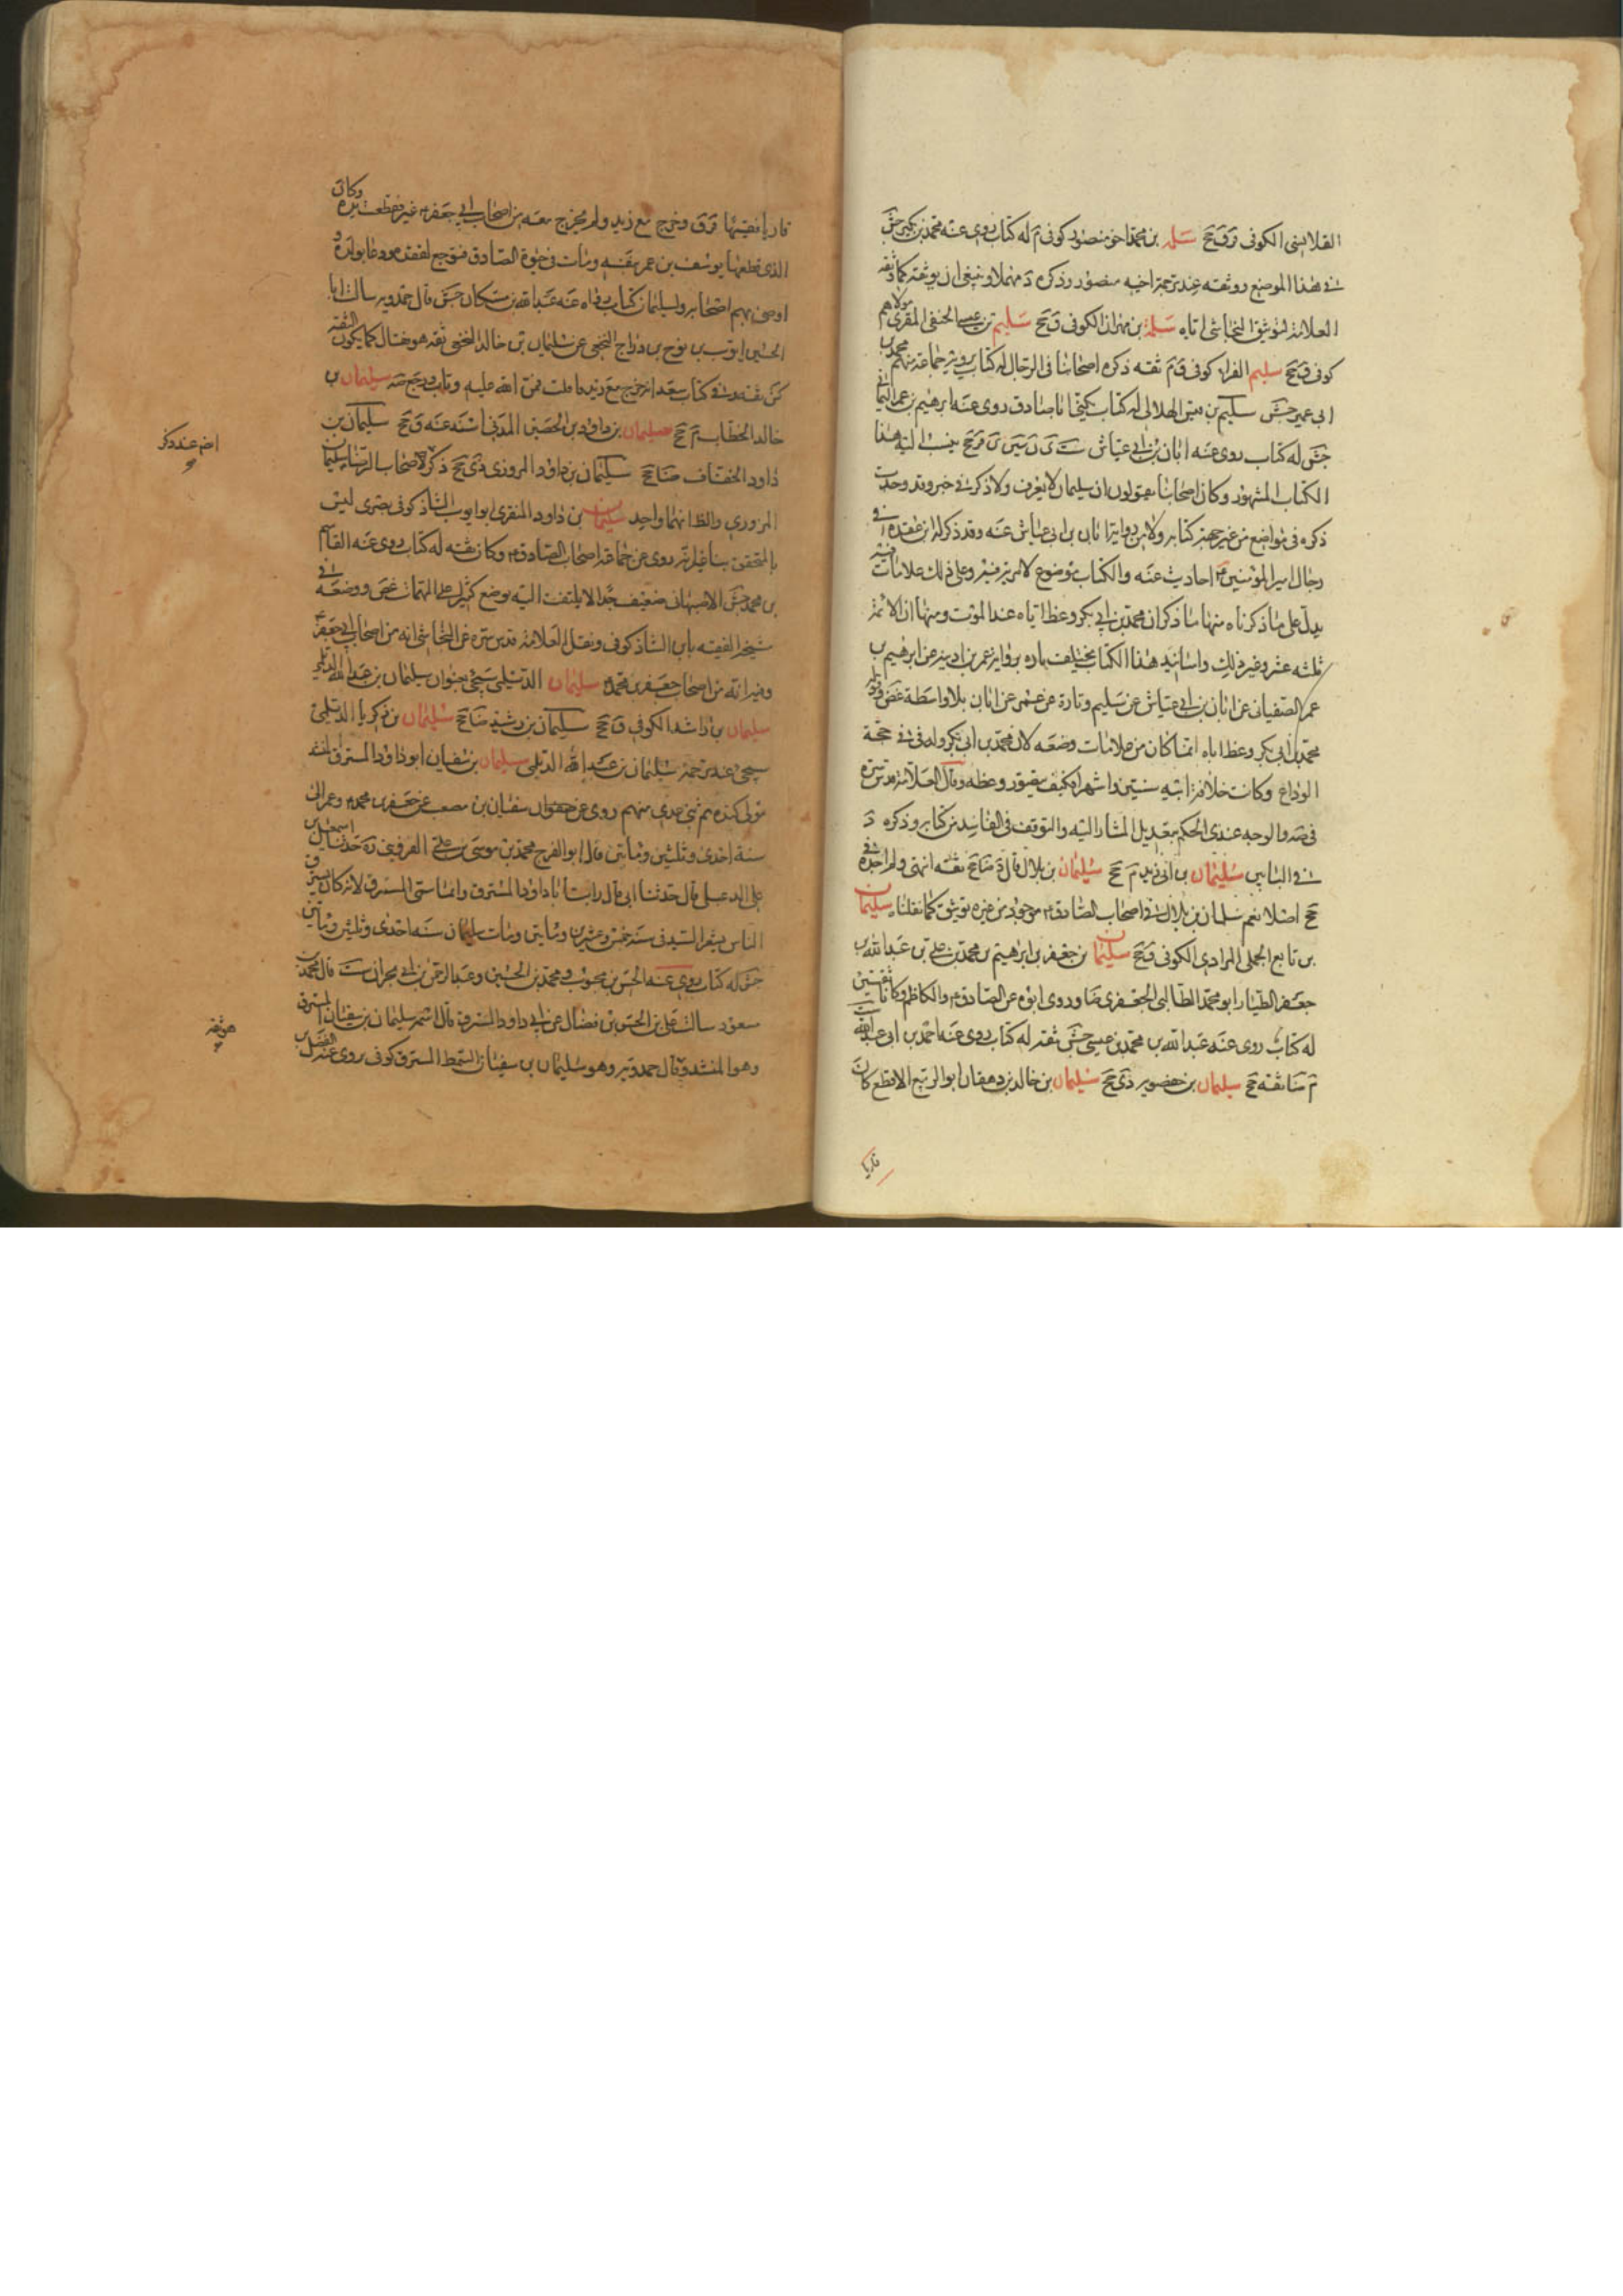 القلانسی الکوفی ق جخ سلمه بن محمد اخو منصور کوفی م له کتاب روی عنه محمد بن بکیر جش
فی هذا الموضع روثقه عند ترجمة اخیه منصور وذکره د مهملا وینبغی ان یوثقه کما وثقه
العلامة لتوثیق النجاشی ایاه سلمة بن مهران الکوفی ق جخ سلیم بن عیسی الحنفی المقری مولاهم
کوفی ق جخ سلیم الفراء کوفی ق م ثقه ذکره اصحابنا فی الرجال له کتاب یرویه جماعة منهم محمد بن
ابی عمیر جش سلیم بن قیس الهلالی له کتاب یکنی ابا صادق روی عنه ابرهیم بن عمر الیمانی
جش له کتاب روی عنه ابان بن ابی عیاش ست ی ن سین ی قر جخ ینسب الیه هذا
الکتاب المشهور وکان اصحابنا یقولون ان سلیما لا یعرف ولا ذکر فی خبر وقد وجدت
ذکره فی مواضع من غیر جهة کتابه ولا من روایة ابان بن ابی عیاش عنه وقد ذکر له ابن عقده فی
رجال امیر المؤمنین ع احادیث عنه والکتاب موضوع لا مریة فیه وعلی ذلک علامات
یدل علی ما ذکرناه منها ما ذکر ان محمد بن ابی بکر وعظ اباه عند الموت ومنها ان الائمة
ثلثه عشر وغیر ذلک واسانید هذا الکتاب یختلف تاره بروایة عمر بن اذینه عن ابرهیم بن
عمر الصنعانی عن ابان بن ابی عیاش عن سلیم وتارة عن عمر عن ابان بلا واسطة غض
محمد بن ابی بکر وعظ اباه انما کان من علامات وضعه لان محمد بن ابی بکر ولد فی حجة
الوداع وکانت خلافة ابیه سنتین واشهرا فکیف یتصور وعظه وقال العلامة قدس سره
فی صه والوجه عندی الحکم بتعدیل المشار الیه والتوقف فی الفاسد من کتابه وذکره د
فی البابین سلیمان بن ابی زید م جخ سلیمان بن بلال قال د ضا جخ ثقه انتهی ولم اجده فی
جخ اصلا نعم سلمان بن بلال فی اصحاب الصادق ع موجود من غیره توثیق کما نقلناه سلیمان
بن تابع الجملی المرادی الکوفی ق جخ سلیمان بن جعفر بن ابرهیم بن محمد بن علی بن عبد الله بن
جعفر الطیار ابو محمد الطالبی الجعفری ضا وروی ابوه عن الصادق ع والکاظم وکانا ثقتین
له کتاب روی عنه عبد الله بن محمد بن عیسی جش ثقه له کتاب روی عنه احمد بن ابی عبد الله ست
م ضا ثقه جخ سلیمان بن حضویه دی جخ سلیمان بن خالد بن دهقان ابو الربیع الاقطع کان
قاریا
قاریا فقیها ق وخرج مع زید ولم یخرج معه من اصحاب ابی جعفر ع غیره فقطعت یده وکان
الذی قطعها یوسف بن عمر بنفسه ومات فی حیوة الصادق فتوجع لفقده ودعا لولده و
اوصی بهم اصحابه ولسلیمان کتاب رواه عنه عبد الله بن مسکان جش قال حمدویه سالت ابا
الحسین ایوب بن نوح بن دراج النخعی عن سلیمان بن خالد النخعی ثقه هو فقال کما یکون الثقه
کش ثقه فی کتاب سعد انه خرج مع زید فافلت فمن الله علیه وتاب ورجع صه سلیمان بن
خالد الخطاب م جخ سلیمان بن داود بن الحصین المدنی اسند عنه ق جخ سلیمان بن
داود الخفاف ضا جخ سلیمان بن داود المروزی دی جخ ذکر لاصحاب الرضا سلیمان
المروزی والظ انهما واحد سلیمان بن داود المنقری ابو ایوب الشاذکونی بصری لیس
بالمتحقق بنا غیر انه روی عن جماعة اصحاب الصادق ع وکان ثقه له کتاب روی عنه القاسم
بن محمد جش الاصبهانی ضعیف جدا لا یلتفت الیه یوضع کثیرا علی المهمات غض ووضعه فی
شیخ الفقیه بابن الشاذکونی ونقل العلامة قدس سره عن النجاشی انه من اصحاب ابی جعفر ع
وفیه انه من اصحاب جعفر بن محمد ع سلیمان الدیلمی سیجیء بعنوان سلیمان بن عبد الله الدیلمی
سلیمان بن راشد الکوفی ق جخ سلیمان بن رشید ضا جخ سلیمان بن زکریا الدیلمی
سیجیء عند ترجمة سلیمان بن عبد الله الدیلمی سلیمان بن سفیان ابو داود المسترق المنشد
مولی کنده ثم بنی عدی منهم روی عن سفیان بن مصعب عن جعفر بن محمد ع وعمر الی
سنة احدی وثلثین ومائتین قال ابو الفرج محمد بن موسی بن علی القزوینی ره حدثنا اسمعیل بن
علی الدعبلی قال حدثنا ابی قال رایت ابا داود المسترق وانما سمی المسترق لانه کان یسترق
الناس بشعر السید فی سنة خمس وعشرین ومایتین ومات سلیمان سنه احدی وثلثین ومائتین
جش له کتاب روی عنه الحسن بن محبوب ومحمد بن الحسین وعبد الرحمن بن ابی نجران ست قال محمد بن
مسعود سالت علی بن الحسن بن فضال عن ابی داود المسترق قال اسمه سلیمان بن سفیان المسترق
وهو المنشد وقال حمدویه وهو سلیمان بن سفیان السمط المسترق کوفی یروی عنه الفضل بن